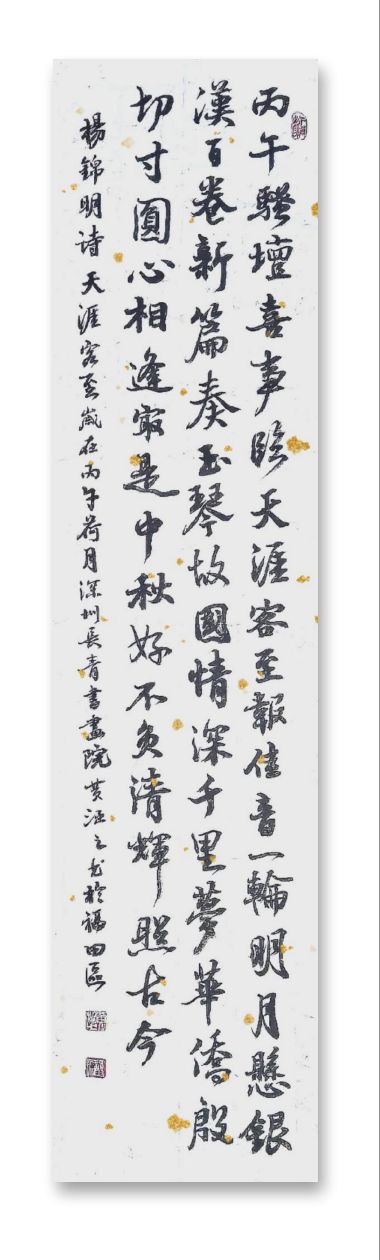 丙午騷壇喜事臨天涯客至報佳音一輪明月懸銀
漢百卷新篇奏玉琴故國情深千里夢華僑殷
切寸圓心相逢最是中秋好不負清輝照古今
楊錦明诗天涯客至歲在丙午荷月深圳長青書畫院黄泩之书於福田區